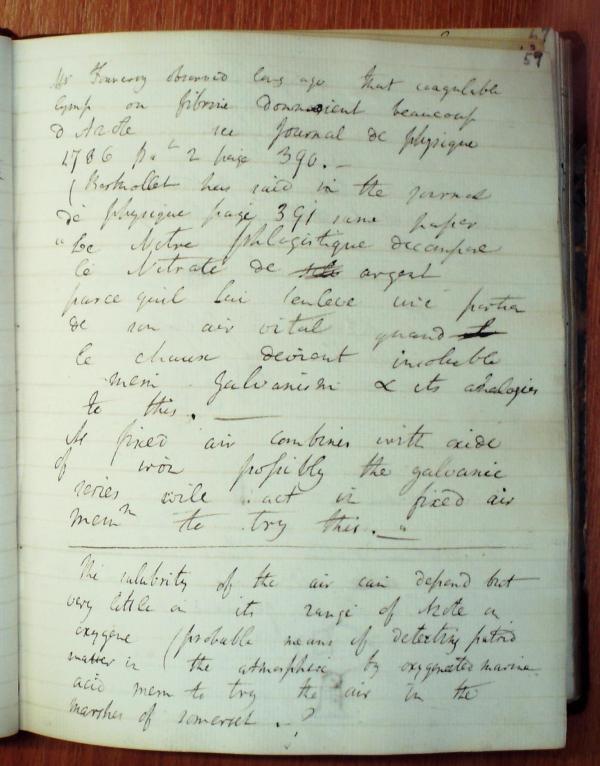 59
Mr Fourcroy observed long ago that coagulable
lymph or fibrine donnoient beaucoup
d Azote see Journal de physique
1786 Pat 2 page 390. -
( Berthollet has said in the journal
de physique page 391 same paper
" Le Nitre phlogistique decompose
le Nitrate de argent
parce quil lui enleve une partie
de son air vital quand
le chaux devient insoluble
mem. galvanism & its analogies
to this.
As fixed air combines with oxide
of iron possibly the galvanic
series will act in fixed air
mem to try this. -
The salubrity of the air can depend but
very little on its range of Azote or
oxygene (probable means of detecting putrid
matter in the atmosphere by oxygenated marine
acid mem to try the air in the
marshes of somerset. - ?